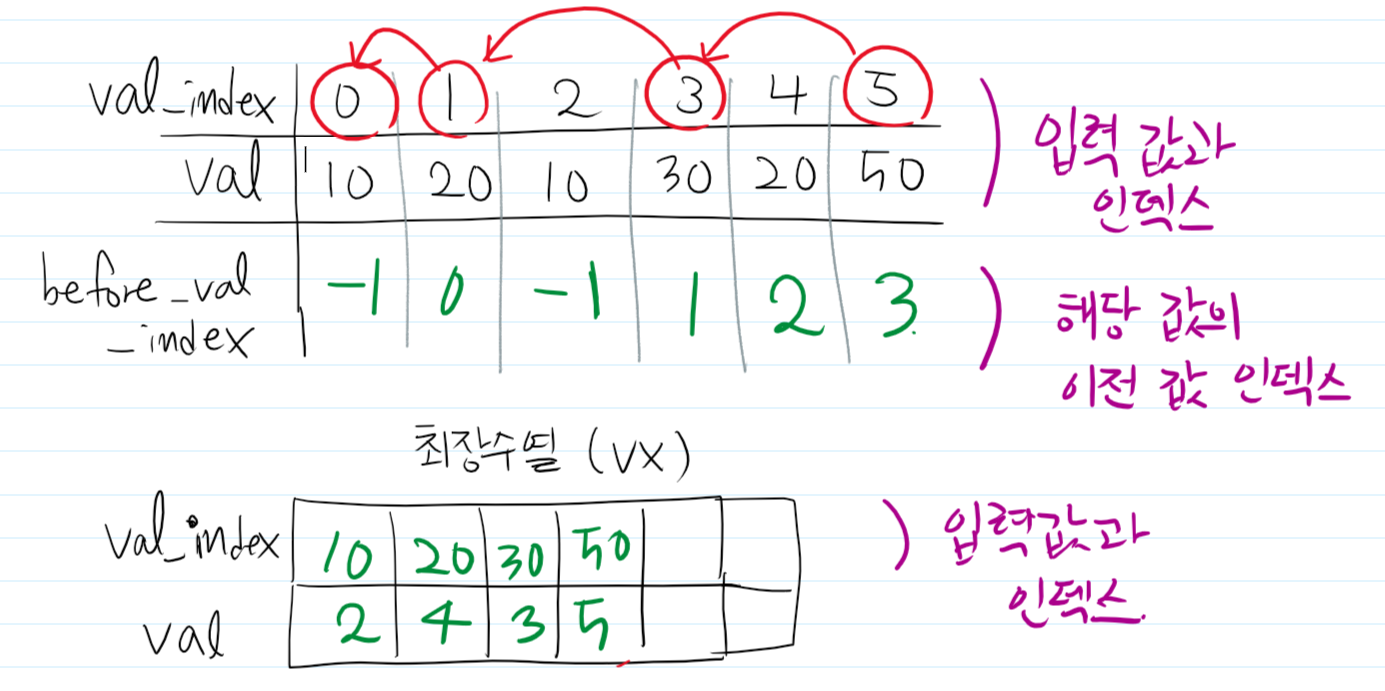 val_index 0 1 2 3 4 5
val 10 20 10 30 20 50
입력 값과
인덱스
before_val
_index
-1 0 -1 1 2 3
해당 값의
이전 값 인덱스
최장수열 (VX)
val_index 10 20 30 50
val 2 4 3 5
입력값과
인덱스.